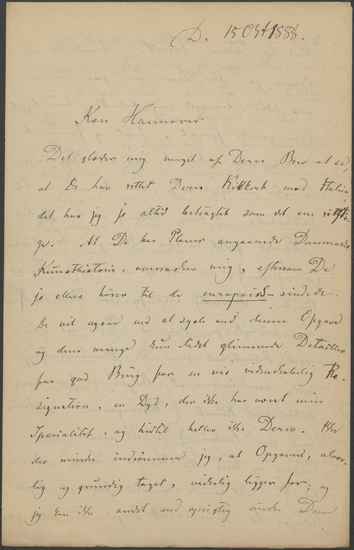 D. 15 Okt 1888.
Kære Hannover
Det glæder mig meget af Deres Brev at se,
at De har rettet Deres Kikkert mod Italien
det har jeg jo altid betragtet som det eneste rigtige
At De har Planer angaaende Danmarks
Kunsthistorie, overrasker mig, eftersom De
jo ellers hører til de europæisk sindede.
De vil ogsaa ved at sysle med denne Opgave
og dens mange kun lidet glimrende Detailler
faa god Brug for en vis videnskabelig Re-
signation, en Dyd, der ikke har været min
Specialitet, og hidtil heller ikke Deres. Ikke
des mindre indrømmer jeg, at Opgaven, alvor-
lig og grundig taget, virkelig ligger for; og
jeg kan ikke andet end oprigtig ønske Dem